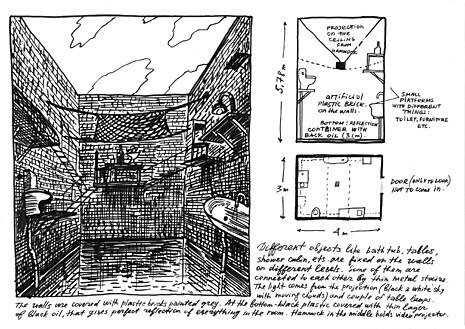 PROJECTION
ON THE
CEILING
FROM
HAMMOCK
5,78 m
artificial
PLASTIC BRICK.
on the walls.
BOTTOM: REFLECTION
CONTAINER WITH
BACK OIL (3 cm).
SMALL
PLATFORMS
WITH DIFFERENT
THINGS:
TOILET, FURNITURE
ETC.
3 m
4 m
DOOR (ONLY TO LOOK)
NOT TO COME IN.
Different objects like bath tub, tables,
shower cabin, ets. are fixed on the walls
on different levels. Some of them are
connected to each other by thin metal stairs
The light comes from the projection (Black & white sky
with moving clouds) and couple of table lamps.
The walls are covered with plastic bricks painted grey. At the bottom - black plastic covered with thin layer
of Black oil, that gives perfect reflection of everything in the room. Hammock in the middle holds video projector.